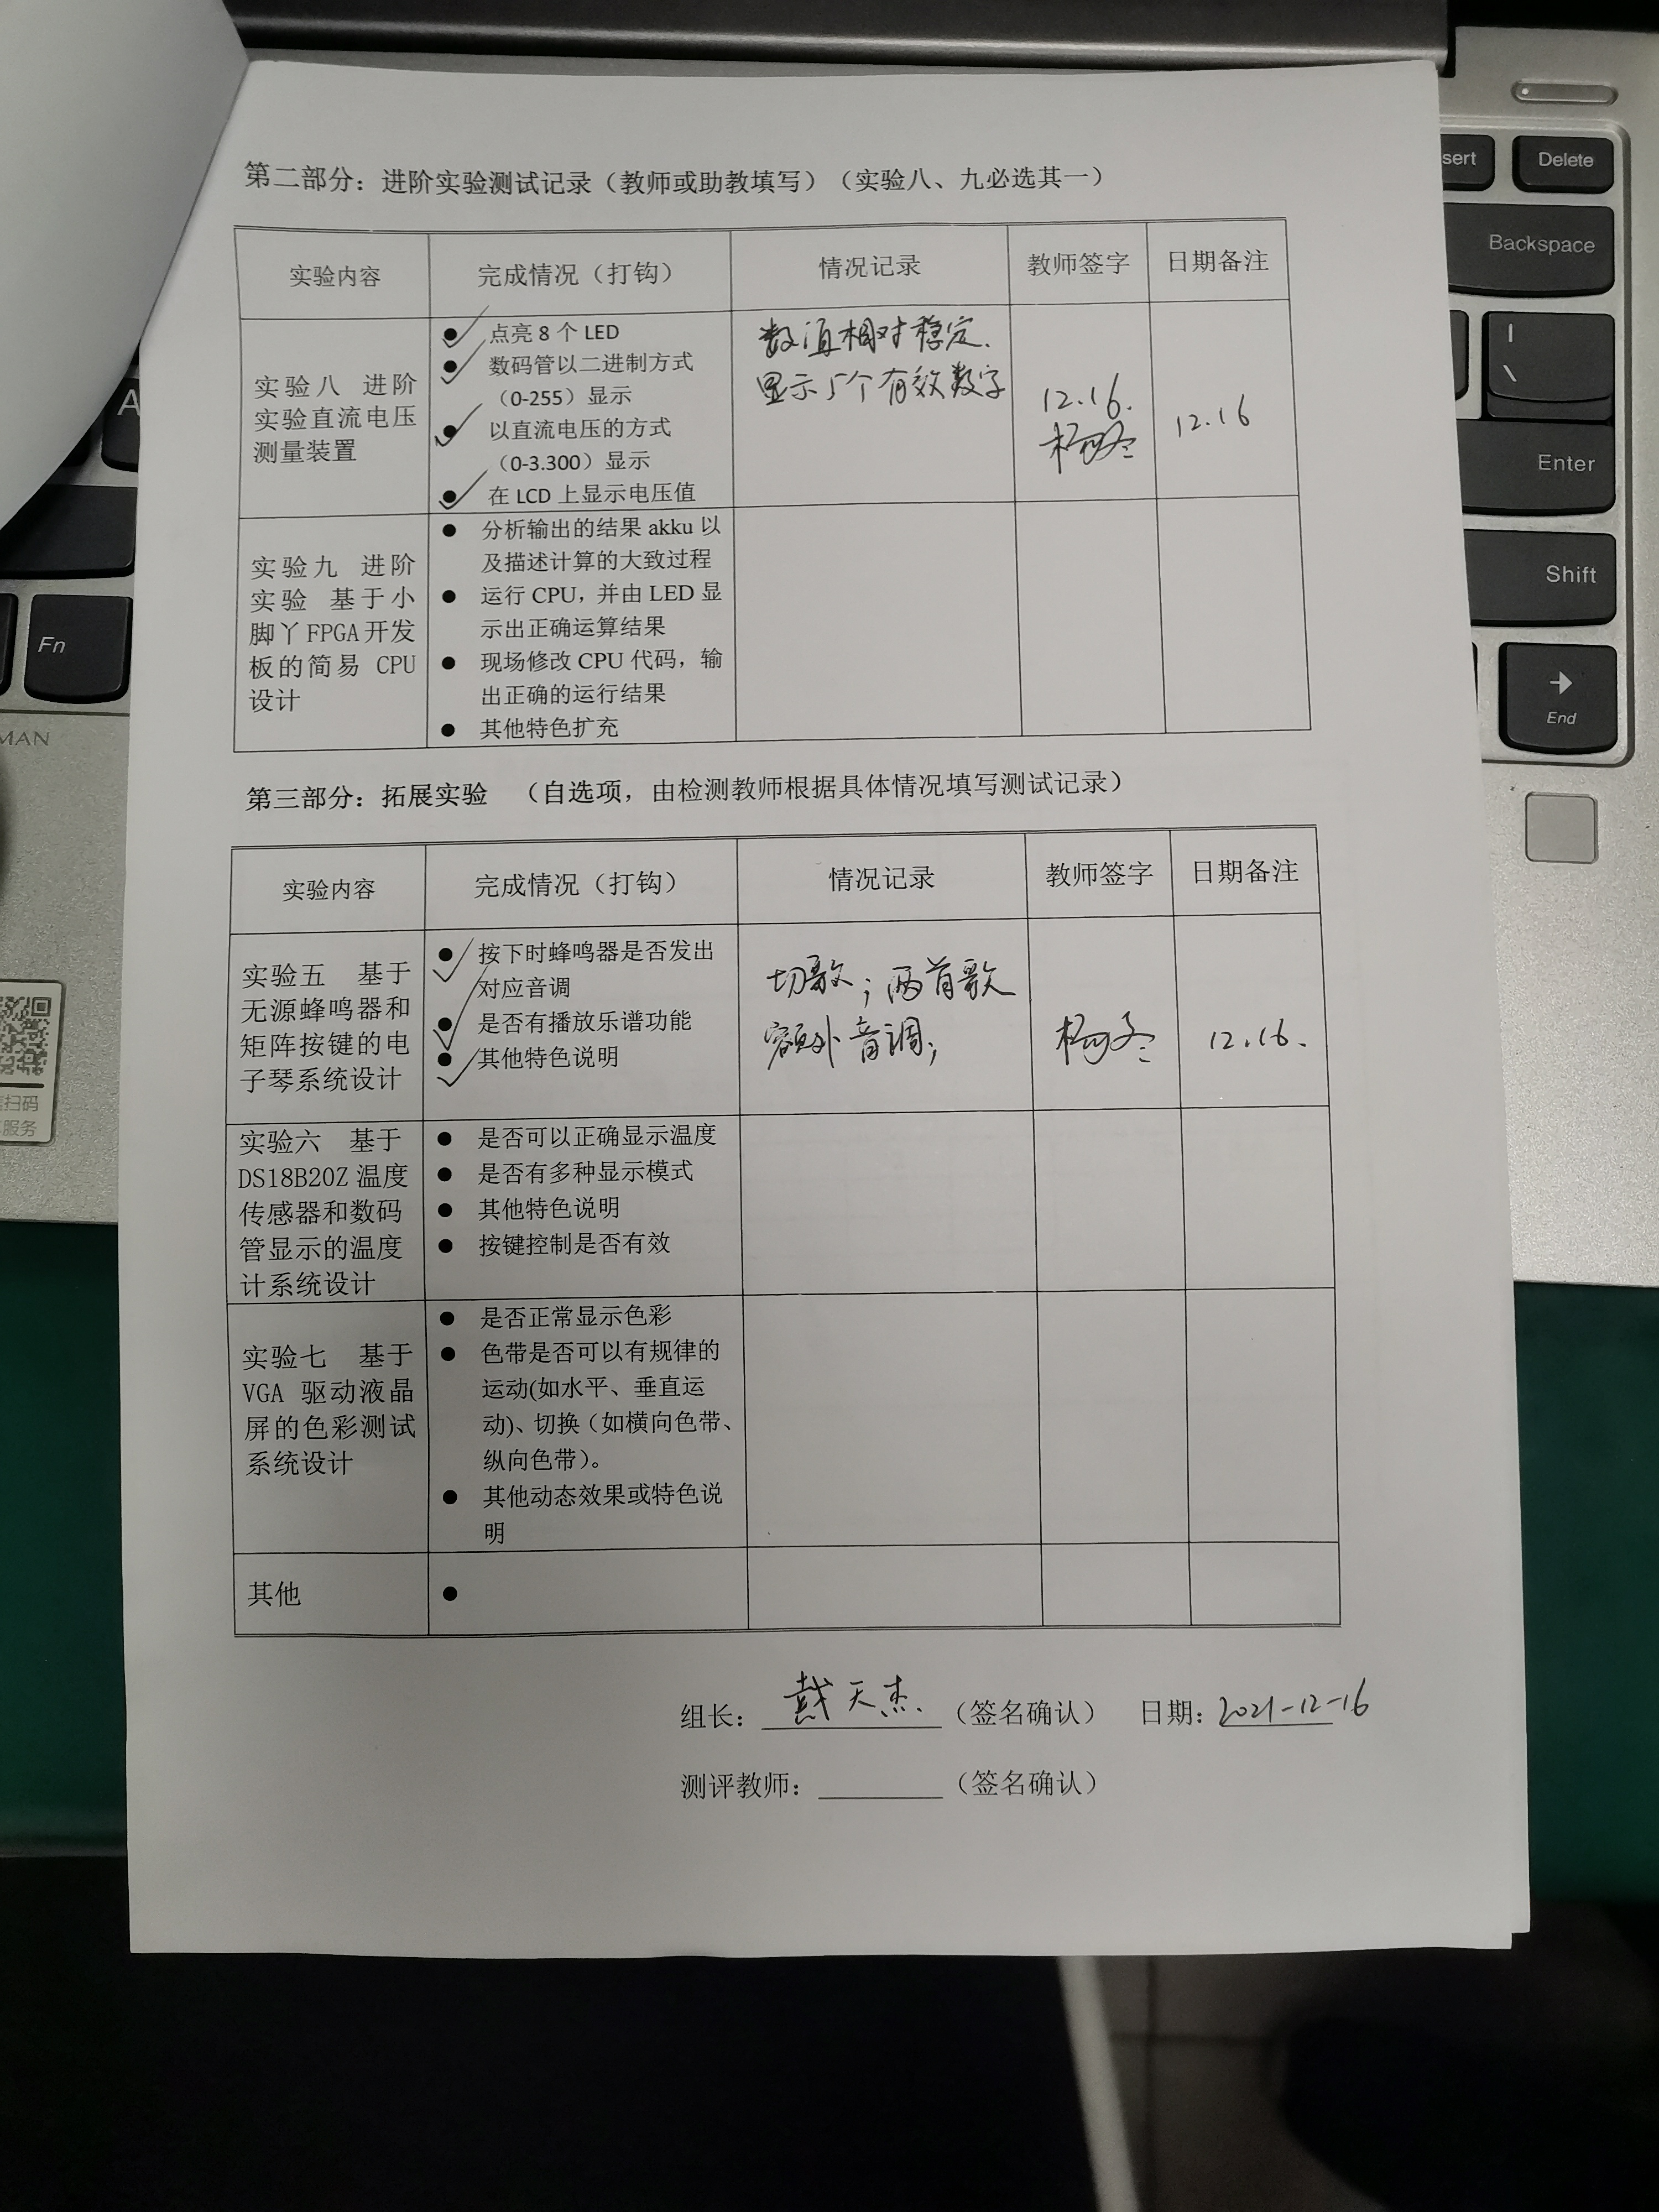 第二部分：进阶实验测试记录（教师或助教填写）（实验八、九必选其一）
实验内容 完成情况（打钩） 情况记录 教师签字 日期备注
实验八 进阶
实验直流电压
测量装置
点亮 8 个 LED
数码管以二进制方式
（0-255）显示
以直流电压的方式
（0-3.300）显示
在 LCD 上显示电压值
数值相对稳定.
显示5个有效数字
12.16.
12.16
实验九 进阶
实验 基于小
脚丫 FPGA 开发
板的简易 CPU
设计
分析输出的结果 akku 以
及描述计算的大致过程
运行 CPU，并由 LED 显
示出正确运算结果
现场修改 CPU 代码，输
出正确的运行结果
其他特色扩充
第三部分：拓展实验 （自选项，由检测教师根据具体情况填写测试记录）
实验内容 完成情况（打钩） 情况记录 教师签字 日期备注
实验五 基于
无源蜂鸣器和
矩阵按键的电
子琴系统设计
按下时蜂鸣器是否发出
对应音调
是否有播放乐谱功能
其他特色说明
切歌；两首歌
额外音调；
12.16.
实验六 基于
DS18B20Z 温度
传感器和数码
管显示的温度
计系统设计
是否可以正确显示温度
是否有多种显示模式
其他特色说明
按键控制是否有效
实验七 基于
VGA 驱动液晶
屏的色彩测试
系统设计
是否正常显示色彩
色带是否可以有规律的
运动(如水平、垂直运
动)、切换（如横向色带、
纵向色带）。
其他动态效果或特色说
明
其他
组长：戴天杰.（签名确认） 日期：2021-12-16
测评教师：（签名确认）
sert
Delete
Backspace
|
\
Enter
Shift
End
A
Fn
MAN
扫码
服务